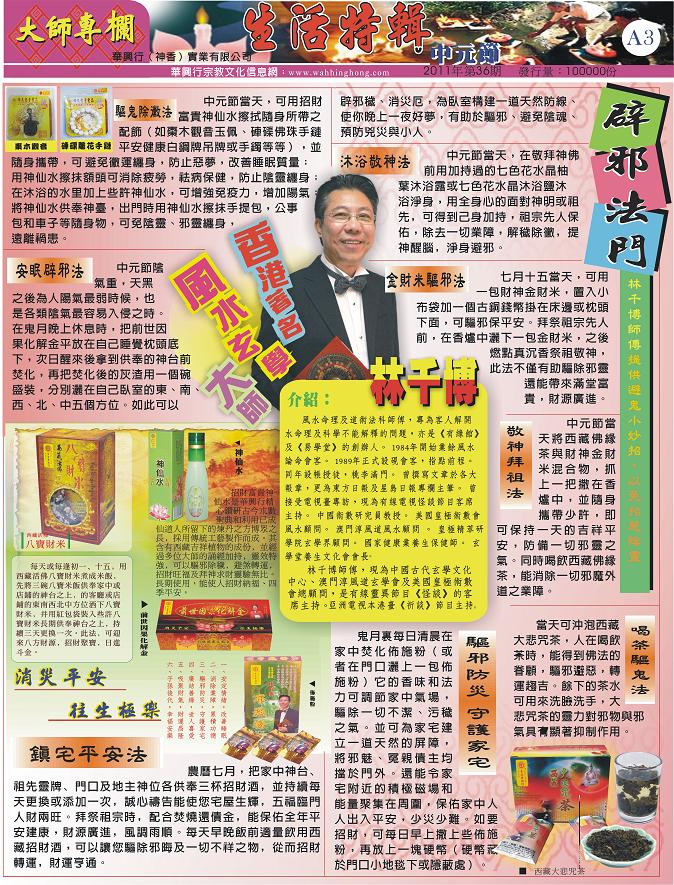 大師專欄
生活特輯
中元節
A3
華興行（神香）實業有限公司
華興行宗教文化信息網：www.wahhinghong.com
2011年第36期 發行量：100000份
辟邪法門
林千博師傅提供避鬼小妙招，以免招惹陰靈
驅鬼除瀲法
棗木觀音
硨磲蓮花手鏈
中元節當天，可用招財
富貴神仙水擦拭隨身所帶之
配飾（如棗木觀音玉佩、硨磲佛珠手鏈
平安健康白鋼牌吊牌或手鐲等等），並
隨身攜帶，可避免黴運纏身，防止惡夢，改善睡眠質量；
用神仙水擦抹額頭可消除疲勞，祛病保健，防止陰靈纏身；
在沐浴的水里加上些許神仙水，可增強免疫力，增加陽氣；
將神仙水供奉神臺，出門時用神仙水擦抹手提包，公事
包和車子等隨身物，可免陰靈、邪靈纏身，
遠離禍患。
安眠辟邪法
中元節陰
氣重，天黑
之後為人陽氣最弱時候，也
是各類陰氣最容易入侵之時。
在鬼月晚上休息時，把前世因
果化解金平放在自己睡覺枕頭底
下，次日醒來後拿到供奉的神台前
焚化，再把焚化後的灰渣用一個碗
盛裝，分別灑在自己臥室的東、南
西、北、中五個方位。如此可以
辟邪穢、消災厄，為臥室構建一道天然防線、
使你晚上一夜好夢，有助於驅邪、避免陰魂、
預防兇災與小人。
沐浴敬神法
中元節當天，在敬拜神佛
前用加持過的七色花水晶柚
葉沐浴露或七色花水晶沐浴鹽沐
浴淨身，用全身心的面對神明或祖
先，可得到己身加持，祖宗先人保
佑，除去一切業障，解穢除黴，提
神醒腦，淨身避邪。
金財米驅邪法
七月十五當天，可用
一包財神金財米，置入小
布袋加一個古銅錢幣掛在床邊或枕頭
下面，可驅邪保平安。拜祭祖宗先人
前，在香爐中灑下一包金財米，之後
燃點真沉香祭祖敬神，
此法不僅有助驅除邪靈
還能帶來滿堂富
貴，財源廣進。
香港著名
風水玄學
大師
林千博
介紹：
風水命理及道術法科師傅，專為客人解開
水命理及科學不能解釋的問題，亦是《有緣館》
及《易學堂》的創辦人。1984年開始業餘風水
論命會客。1989年正式設硯會客，指點前程。
同年設帳授徒，桃李滿門。曾撰寫文章於各大
報章，更為東方日報及星島日報專欄主筆。曾
接受電視臺專訪，現為有線電視怪談節目客席
主持。中國術數研究員教授。英國皇極術數會
風水顧問。澳門淳風道風水顧問。皇極精萃研
學院玄學界顧問。國家健康業養生保健師。玄
學堂養生文化會會長。
林千博師傅，現為中國古代玄學文化
中心、澳門淳風道玄學會及英國皇極術數
會總顧問，是有線靈異節目《怪談》的客
席主持。亞洲電視本港臺《祈談》節目主持。
敬神拜祖法
中元節當
天將西藏佛緣
茶與財神金財
米混合物，抓
上一把撒在香
爐中，並隨身
攜帶少許，即
可保持一天的吉祥平
安，防備一切邪靈之
氣。同時喝飲西藏佛緣
茶，能消除一切邪魔外
道之業障。
八寶財米
西藏活佛
八寶財米
每天或每逢初一、十五，用
西藏活佛八寶財米煮成米飯，
先將三碗八寶米飯供奉家中或
店鋪的神台之上，的客廳或店
鋪的東南西北中方位洒下八寶
財米，並用紅包袋裝入些許八
寶財米長期供奉神台之上，持
續三天更換一次，此法，可迎
來八方財源，招財聚寶，日進
斗金。
神仙水
神仙水
招財富貴神
仙水是華興行精
心鑽研古今水數
聖典和利用已成
仙道人所留下的煉丹之方博眾之
長，採用傳統工藝製作而成，其
含有西藏吉祥植物的成份，並經
過多位大師的誦經加持，靈效特
強，可以驅邪除穢，避煞轉運，
招財旺福及拜神求財靈驗無比。
長期使用，能使人招財納福，四
季平安。
前世因果化解金
前世因果化解金
佈施粉
消災平安
往生極樂
鎮宅平安法
農曆七月，把家中神台、
祖先靈牌、門口及地主神位各供奉三杯招財酒，並持續每
天更換或添加一次，誠心禱告能使您宅屋生輝，五福臨門
人財兩旺。拜祭祖宗時，配合焚燒還債金，能保佑全年平
安建康，財源廣進，風調雨順。每天早晚飯前適量飲用西
藏招財酒，可以讓您驅除邪晦及一切不祥之物，從而招財
轉運，財運亨通。
驅邪防災 守護家宅
鬼月裏每日清晨在
家中焚化佈施粉（或
者在門口灑上一包佈
施粉）它的香味和法
力可調節家中氣場，
驅除一切不潔、污穢
之氣。並可為家宅建
立一道天然的屏障，
將邪魅、冤親債主均
擋於門外。還能令家
宅附近的積極磁場和
能量聚集在周圍，保佑家中人
人出入平安，少災少難。如要
招財，可每日早上撒上些佈施
粉，再放上一塊硬幣（硬幣藏
於門口小地毯下或隱蔽處）。
喝茶驅鬼法
當天可沖泡西藏
大悲咒茶，人在喝飲
茶時，能得到佛法的
眷顧，驅邪避惡，轉
運趨吉。餘下的茶水
可用來洗臉洗手，大
悲咒茶的靈力對邪物與邪
氣具有顯著抑制作用。
西藏大悲咒茶